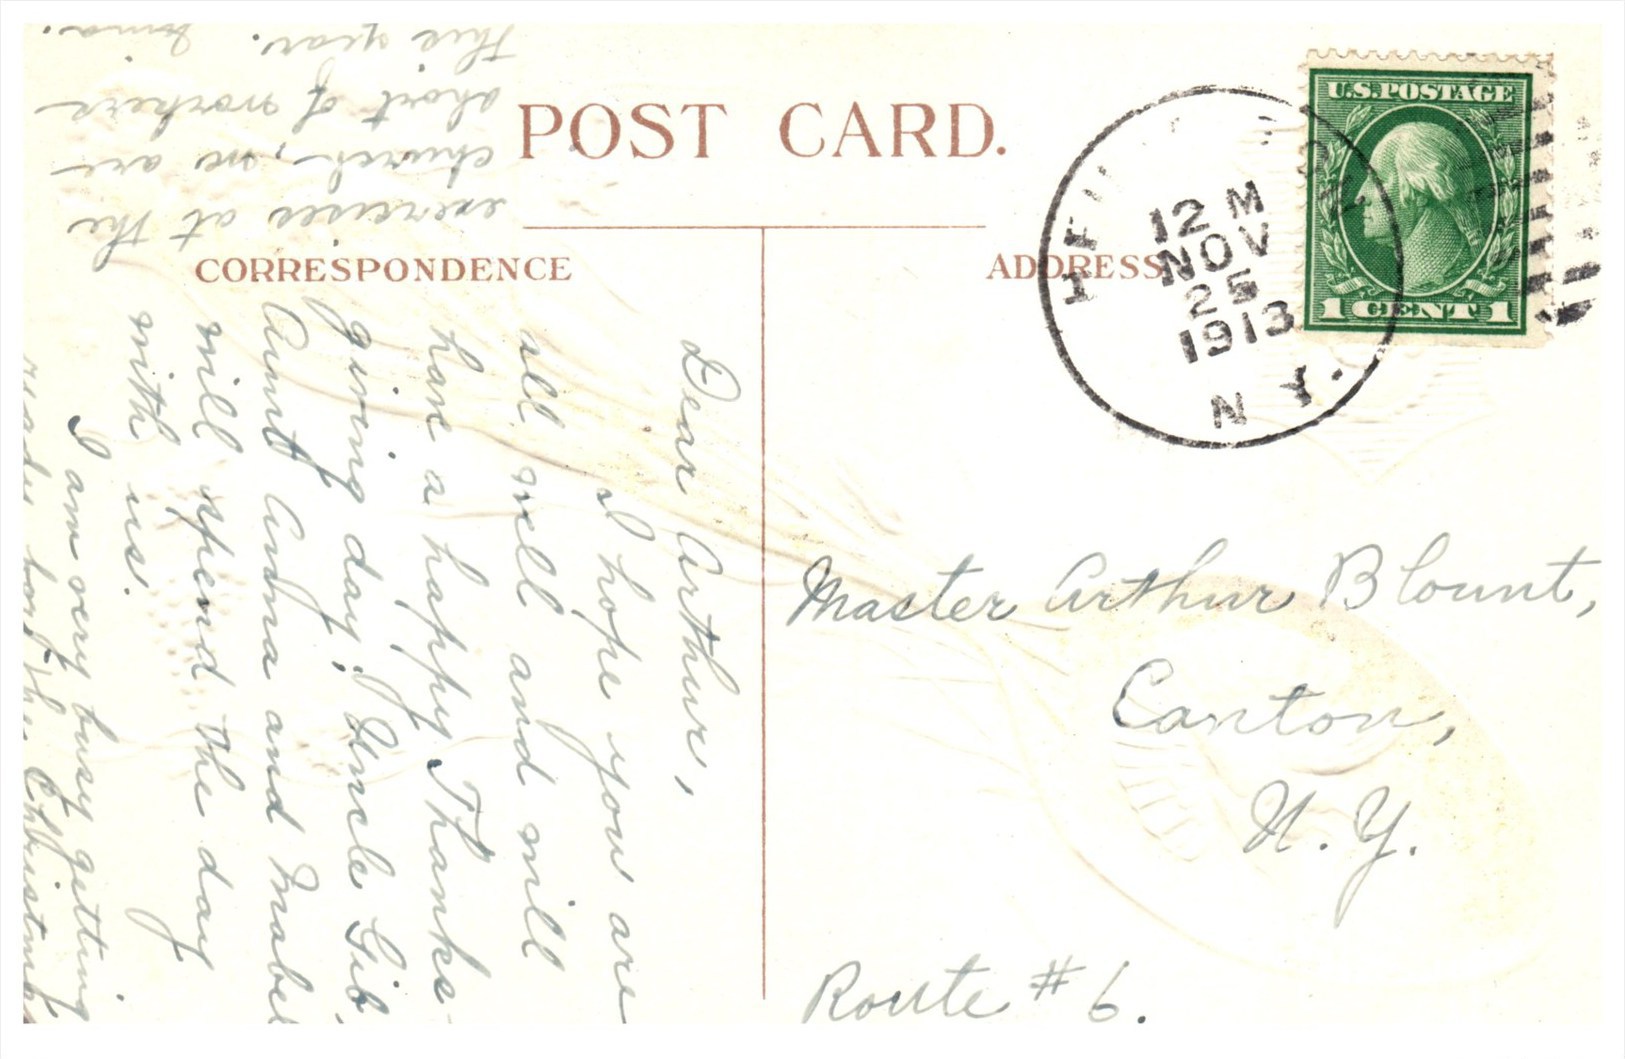 POST CARD.
CORRESPONDENCE
ADDRESS
12 M
NOV
25
1913
N Y.
U.S. POSTAGE
1 CENT 1
Master Arthur Blount,
Canton,
N. Y.
Route # 6.
Dear Arthur,
I hope you are
all well and will
have a happy Thanks-
giving day. Uncle Gib,
Aunt Anna and Mabel
will spend the day
with us.
I am very busy getting
ready for the Christmas
exercises at the
church, we are
short of workers
this year.